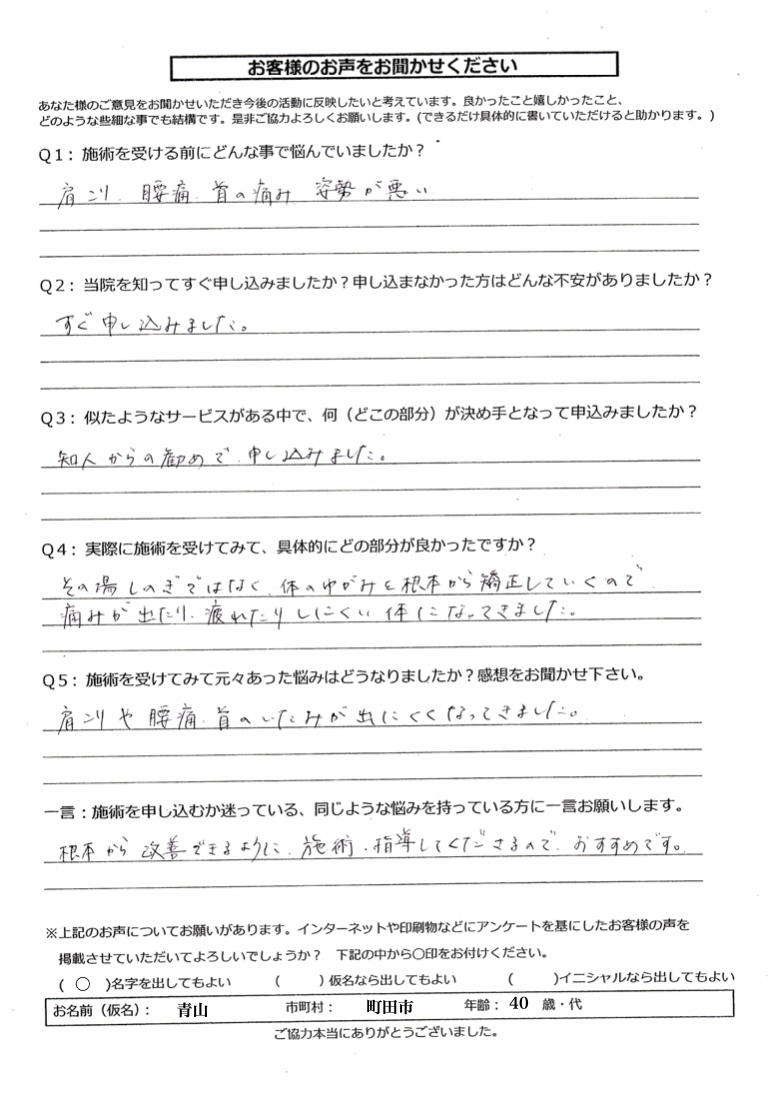 お客様のお声をお聞かせください
あなた様のご意見をお聞かせいただき今後の活動に反映したいと考えています。良かったこと嬉しかったこと、
どのような些細な事でも結構です。是非ご協力よろしくお願いします。(できるだけ具体的に書いていただけると助かります。)
Q1:施術を受ける前にどんな事で悩んでいましたか？
肩こり、腰痛、首の痛み 姿勢が悪い
Q2:当院を知ってすぐ申し込みましたか？申し込まなかった方はどんな不安がありましたか？
すぐ申し込みました。
Q3:似たようなサービスがある中で、何（どこの部分）が決め手となって申込みましたか？
知人からの勧めで、申し込みました。
Q4:実際に施術を受けてみて、具体的にどの部分が良かったですか？
その場しのぎではなく、体のゆがみを根本から矯正していくので、
痛みが出たり、疲れたりしにくい体になってきました。
Q5:施術を受けてみて元々あった悩みはどうなりましたか？感想をお聞かせ下さい。
肩こりや腰痛、首のいたみが出にくくなってきました。
一言：施術を申し込むか迷っている、同じような悩みを持っている方に一言お願いします。
根本から改善できるように、施術・指導してくださるので、おすすめです。
※上記のお声についてお願いがあります。インターネットや印刷物などにアンケートを基にしたお客様の声を
掲載させていただいてよろしいでしょうか？ 下記の中から〇印をお付けください。
( 〇 )名字を出してもよい ( )仮名なら出してもよい ( )イニシャルなら出してもよい
お名前（仮名）： 青山 市町村： 町田市 年齢：40 歳・代
ご協力本当にありがとうございました。